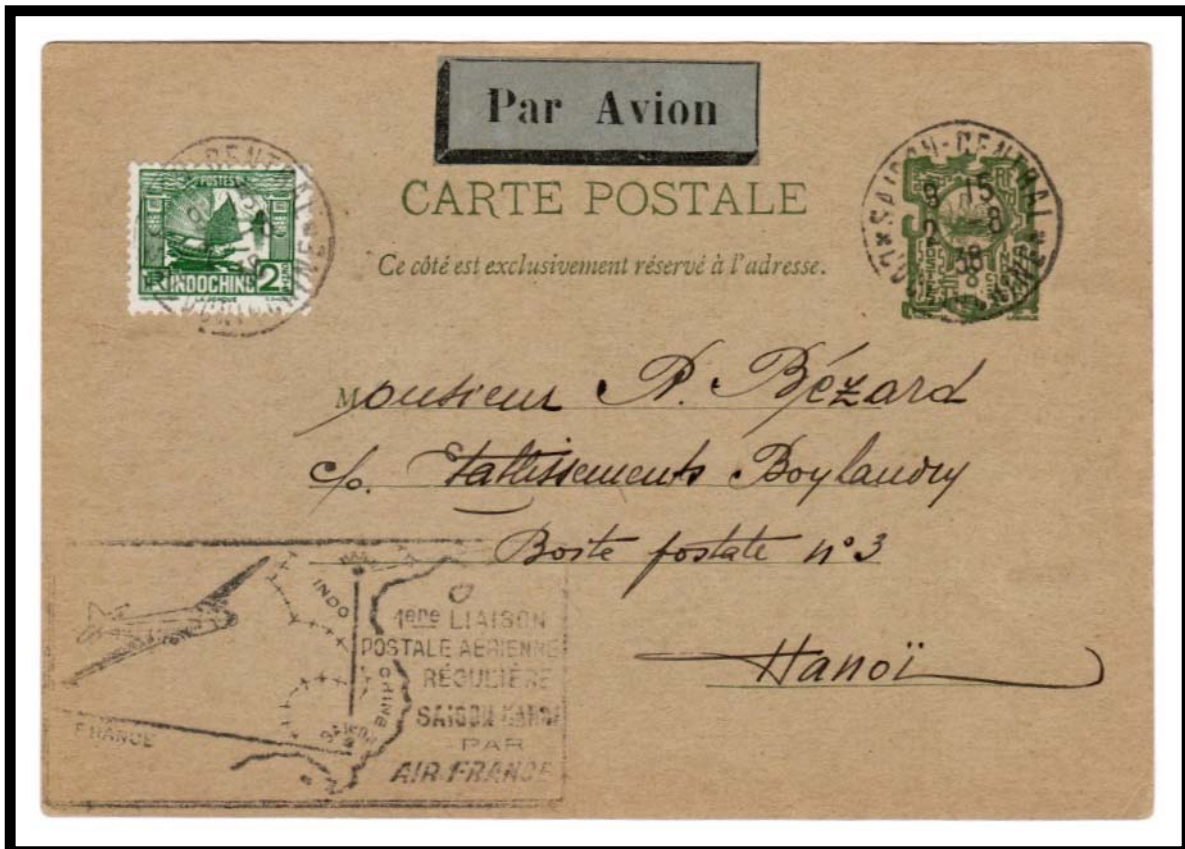 Par Avion
CARTE POSTALE
Ce côté est exclusivement réservé à l'adresse.
POSTES
INDOCHINE 2
LA JONQUE
SAIGON-CENTRAL
9 15
2 8
38
RF
Monsieur P. Bézard
c/o. Etablissements Boylandry
Boite postale n° 3
Hanoï
INDO
CHINE
SAIGON
FRANCE
1ère LIAISON
POSTALE AÉRIENNE
RÉGULIÈRE
SAIGON-HANOI
PAR
AIR FRANCE